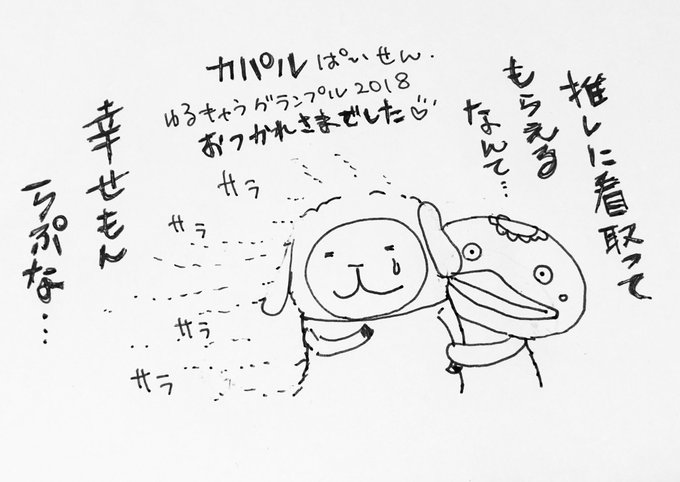 カパル ぱいせん.
ゆるキャラグランプル2018
おつかれさまでした♡
推しに看取って
もらえる
なんて…
幸せもん
らぷな…
サラ
サラ
サラ
サラ